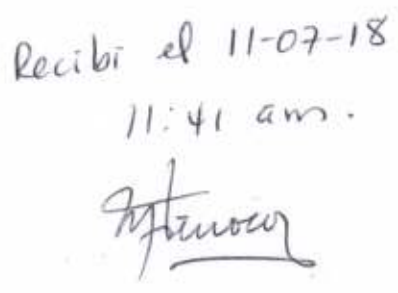 Recibi el 11-07-18
11:41 am.